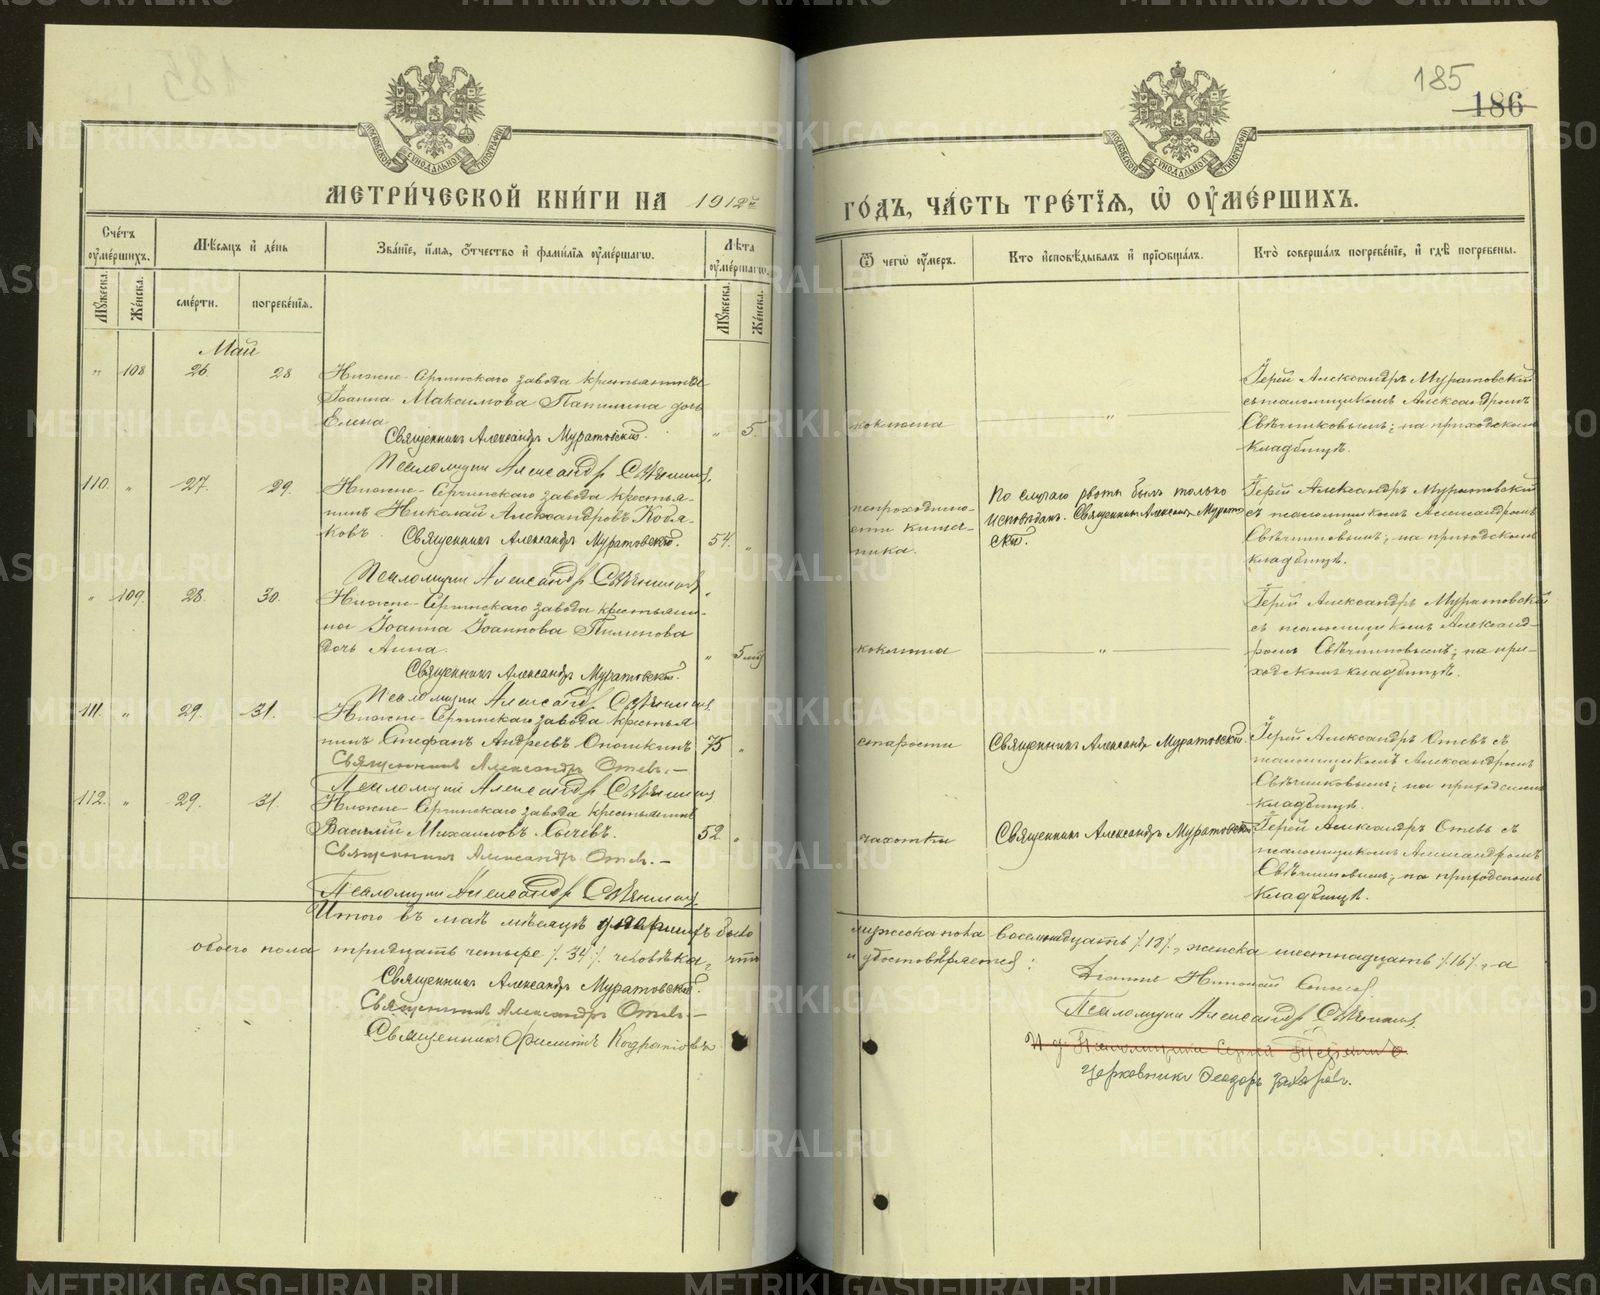 185
186
МЕТРИ́ЧЕСКОЙ КНИ́ГИ НА 1912й
ГО́ДЪ, ЧА́СТЬ ТРЕ́ТІѦ, Ѽ ОУМЕ́РШИХЪ.
Сче́тъ оуме́ршихъ.
Мꙋ́жеска.
Же́нска.
Мѣ́сѧцъ и҆ де́нь
сме́рти.
погребе́нїѧ.
Зва́нїе, и҆́мѧ, ѻ҆́тчество и҆ фами́лїѧ оуме́ршагѡ.
Лѣ́та оуме́ршагѡ.
Мꙋ́жеска.
Же́нска.
Ѿ чегѡ̀ оу́меръ.
Кто̀ и҆сповѣ́дывалъ и҆ прїѡбща́лъ.
Кто̀ соверша́лъ погребе́нїе, и҆ гдѣ̀ погребе́ны.
Май
" 108 26. 28
Нижне-Сергинскаго завода крестьянина
Іоанна Максимова Папилина дочь
Елена
Священникъ Александръ Муратовскій.
Псаломщикъ Александръ Свѣчников
" 5.
коклюша
"
Іерей Александръ Муратовскій
съ псаломщикомъ Александромъ
Свѣчниковымъ; на приходскомъ
кладбищѣ.
110. " 27. 29.
Нижне-Сергинскаго завода крестья-
нинъ Николай Александровъ Кобя-
ковъ.
Священникъ Александръ Муратовскій.
Псаломщикъ Александръ Свѣчников
54. "
непроходимо-
сти кишеч-
ника.
По случаю рвоты былъ только
исповѣданъ. Священникъ Александръ Муратов
скій.
Іерей Александръ Муратовскій
съ псаломщикомъ Александромъ
Свѣчниковымъ; на приходскомъ
кладбищѣ.
" 109. 28. 30.
Нижне-Сергинскаго завода крестьяни-
на Іоанна Іоаннова Пилипова
дочь Анна.
Священникъ Александръ Муратовскій.
Псаломщикъ Александръ Свѣчников
" 5 мѣс
коклюша
"
Іерей Александръ Муратовскій
съ псаломщикомъ Александ-
ромъ Свѣчниковымъ; на при-
ходскомъ кладбищѣ.
111. " 29. 31.
Нижне-Сергинскаго завода крестья
нинъ Стефанъ Андреевъ Опошкинъ
Священникъ Александръ Отевъ.
Псаломщикъ Александръ Свѣчников
75 "
старости
Священникъ Александръ Муратовскій.
Іерей Александръ Отевъ съ
псаломщикомъ Александромъ
Свѣчниковымъ; на приходскомъ
кладбищѣ.
112. " 29. 31.
Нижне-Сергинскаго завода крестьянинъ
Василій Михаиловъ Сычевъ.
Священникъ Александръ Отевъ.
Псаломщикъ Александръ Свѣчников.
52 "
чахотки
Священникъ Александръ Муратовскій
Іерей Александръ Отевъ съ
псаломщикомъ Александромъ
Свѣчниковымъ; на приходскомъ
кладбищѣ.
Итого въ маѣ мѣсяцѣ умершихъ было мужеска пола восемнадцать /18/, женска шестнадцать /16/, а
обоего пола тридцать четыре /34/ человѣка, что и удостовѣряется:
Священникъ Александръ Муратовскій.
Священникъ Александръ Отевъ.
Священникъ Филиппъ Кодратовъ
Діаконъ Николай
Псаломщикъ Александръ Свѣчников.
И. д. Псаломщика Сергій
Церковникъ Ѳеодоръ Захаровъ.
METRIKI.GASO-URAL.RU